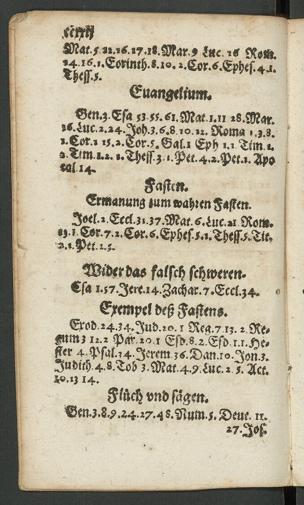 Mat. 5. 11. 16. 17. 18. Mar. 9 Luc. 16 Rom.
14. 16. 1. Corinth. 8. 10. 2. Cor. 6. Ephes. 4. 1.
Thess. 5.
Euangelium.
Gen. 3. Esa 53. 55. 61. Mat. 1. 11 28. Mar.
16. Luc. 2. 24. Joh. 3. 6. 8. 10. 12. Roma 1. 3. 8.
1. Cor. 1 15. 2. Cor. 5. Gal. 1 Eph 1. 1 Tim. 1.
2. Tim. 1. 2. 1. Thess. 3. 1. Pet. 4. 2. Pet. 1. Apo
cal. 14.
Fasten.
Ermanung zum wahren Fasten.
Joel. 2. Eccl. 31. 37. Mat. 6. Luc. 21 Rom.
13. 1. Cor. 7. 2. Cor. 6. Ephes. 5. 1. Thess. 5. Tit.
2. 1. Pet. 1. 5.
Wider das falsch schweren.
Esa 1. 57. Jere. 14. Zachar. 7. Eccl. 34.
Exempel deß Fastens.
Exod. 24. 34. Jud. 20. 1 Reg. 7. 13. 2. Re-
gum 3 12. 2 Par. 20. 1 Esd. 8. 2. Esd. 1. 1. He-
ster 4. Psal. 34. Jerem 36. Dan. 10. Jon. 3.
Judith. 4. 8. Tob 3. Mat. 4. 9. Luc. 2. 5. Act.
10. 13 14.
Flüch vnd sägen.
Gen. 3. 8. 9. 24. 27. 48. Num. 5. Deut. 11.
27. Jos.